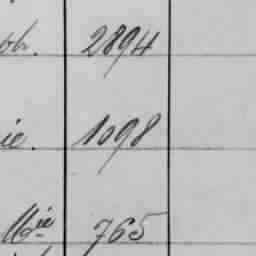 ob. 2894
ie. 1098
Mie 765